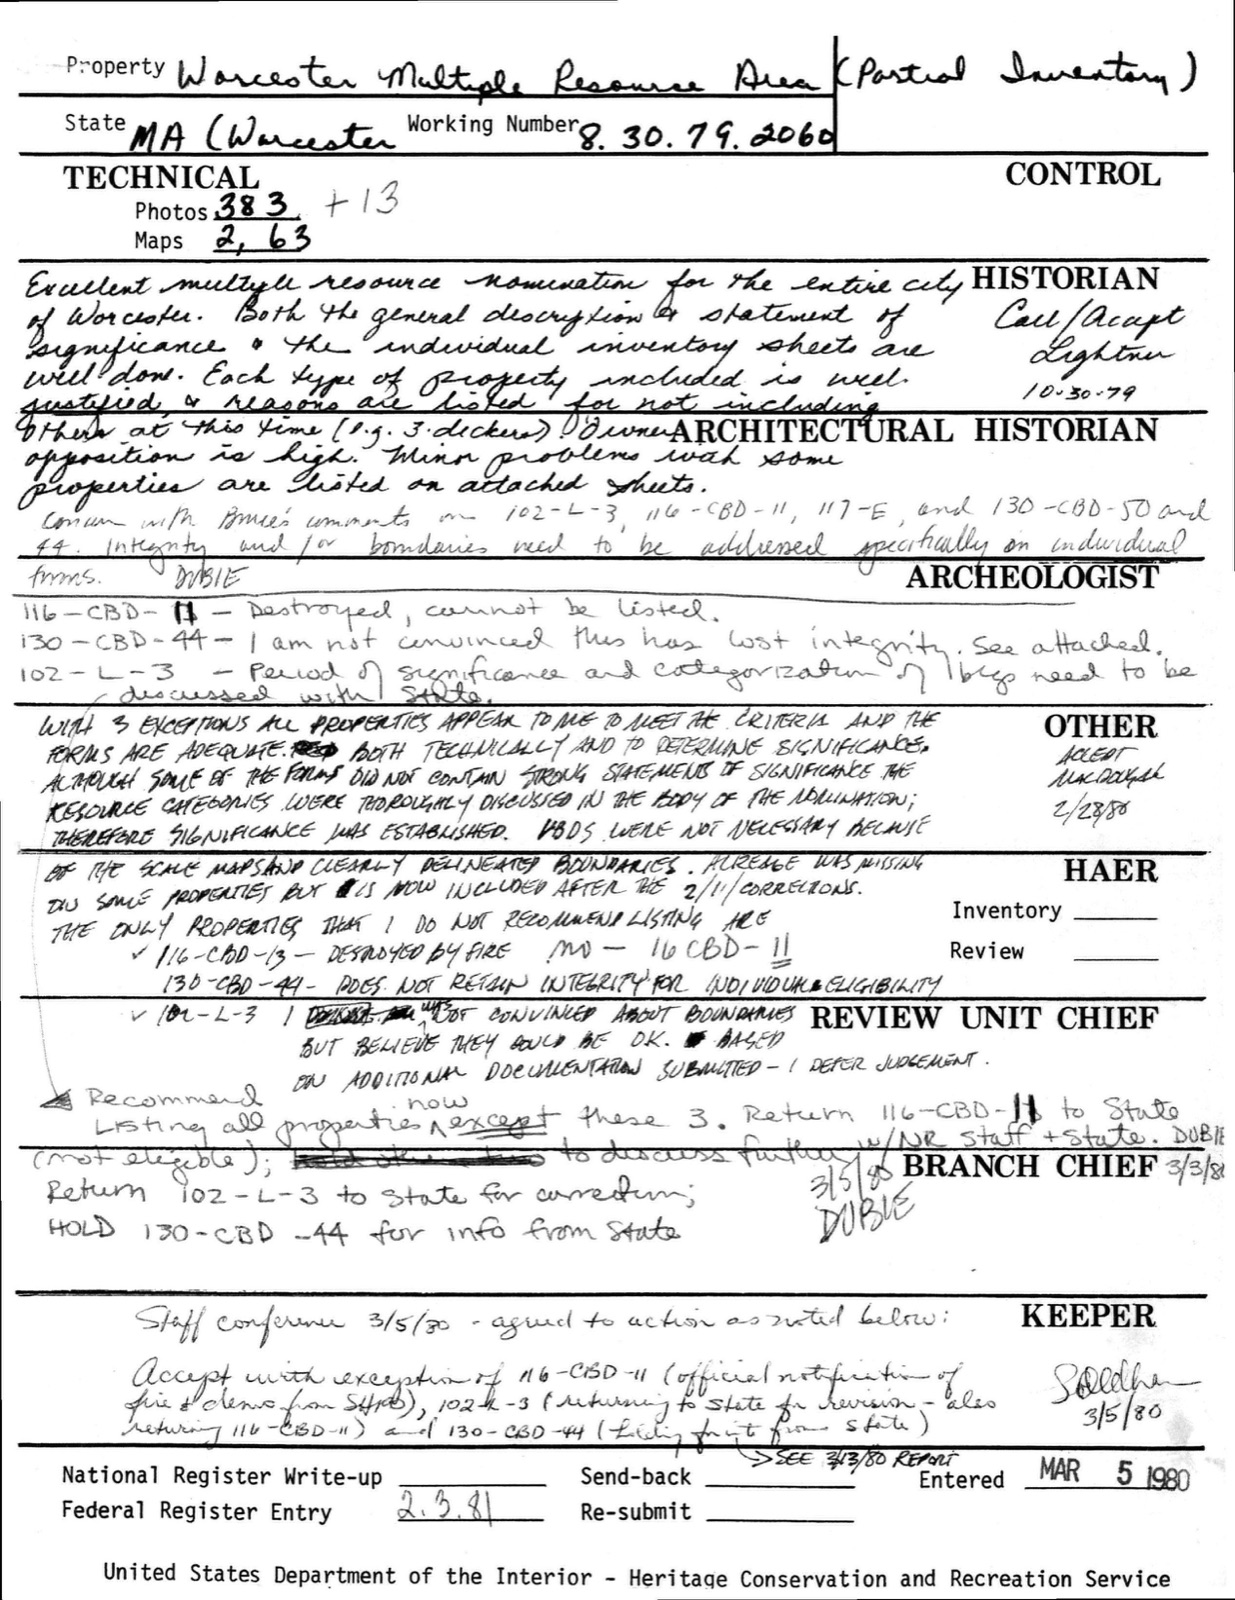 Property Worcester Multiple Resource Area (Partial Inventory)
State MA (Worcester Working Number 8.30.79.2060
TECHNICAL CONTROL
Photos 383 + 13
Maps 2, 63
Excellent multiple resource nomination for the entire city HISTORIAN
of Worcester. Both the general description & statement of Call/Accept
significance & the individual inventory sheets are Lightner
well done. Each type of property included is well 10-30-79
justified, & reasons are listed for not including
others at this time (e.g. 3-deckers). Owner ARCHITECTURAL HISTORIAN
opposition is high. Minor problems with some
properties are listed on attached sheets.
Concur with Bruce's comments on 102-L-3, 116-CBD-11, 117-E, and 130-CBD-50 and
44. Integrity and/or boundaries need to be addressed specifically on individual
forms. DUBIE ARCHEOLOGIST
116-CBD-11 - Destroyed, cannot be listed.
130-CBD-44 - I am not convinced this has lost integrity. See attached.
102-L-3 - Period of significance and categorization of bldgs need to be
discussed with State.
WITH 3 EXCEPTIONS ALL PROPERTIES APPEAR TO ME TO MEET THE CRITERIA AND THE OTHER
FORMS ARE ADEQUATE BOTH TECHNICALLY AND TO DETERMINE SIGNIFICANCE. ACCEPT
ALTHOUGH SOME OF THE FORMS DID NOT CONTAIN STRONG STATEMENTS OF SIGNIFICANCE THE MACDOUGAL
RESOURCE CATEGORIES WERE THOROUGHLY DISCUSSED IN THE BODY OF THE NOMINATION; 2/28/80
THEREFORE SIGNIFICANCE WAS ESTABLISHED. VBDS WERE NOT NECESSARY BECAUSE
OF THE SCALE MAPS AND CLEARLY DELINEATED BOUNDARIES. ACREAGE WAS MISSING HAER
ON SOME PROPERTIES BUT IS NOW INCLUDED AFTER THE 2/11/ CORRECTIONS.
THE ONLY PROPERTIES THAT I DO NOT RECOMMEND LISTING ARE Inventory
✓ 116-CBD-13 - DESTROYED BY FIRE NO - 116 CBD-11 Review
130-CBD-44 - DOES NOT RETAIN INTEGRITY FOR INDIVIDUAL ELIGIBILITY
✓ 102-L-3 I was NOT CONVINCED ABOUT BOUNDARIES REVIEW UNIT CHIEF
BUT BELIEVE THEY COULD BE OK. BASED
ON ADDITIONAL DOCUMENTATION SUBMITTED - I DEFER JUDGEMENT.
Recommend
Listing all properties now except these 3. Return 116-CBD-11 to State
(not eligible); to discuss further w/NR staff + State. DUBIE
3/5/80 BRANCH CHIEF 3/3/80
Return 102-L-3 to State for correction; DUBIE
HOLD 130-CBD-44 for info from State
Staff conference 3/5/80 - agreed to action as noted below: KEEPER
Accept with exception of 116-CBD-11 (official notification of
fire & demo from SHPO), 102-L-3 (returning to State for revision - also 3/5/80
returning 116-CBD-11) and 130-CBD-44 (holding for info from State)
→ SEE 3/13/80 REPORT
National Register Write-up Send-back Entered MAR 5 1980
Federal Register Entry 2.3.81 Re-submit
United States Department of the Interior - Heritage Conservation and Recreation Service